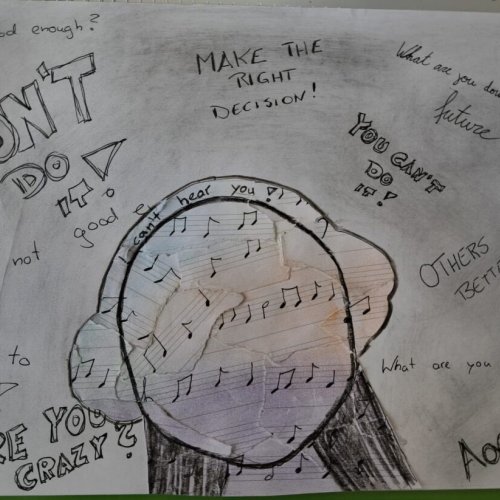 od enough?
MAKE THE
RIGHT
DECISION!
What are you
future
ON'T
DO
IT!
YOU CAN'T
DO
IT!
I can't hear you!
not good e
OTHERS
BETTE
to
What are you
RE YOU
CRAZY?